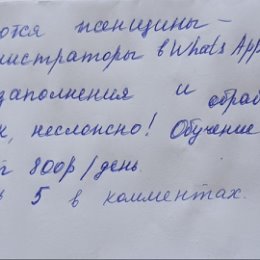 ются женщины -
нистраторы в Whats App
заполнения и обраб
к, несложно! Обучение
г 800р/день.
5 в комментах.